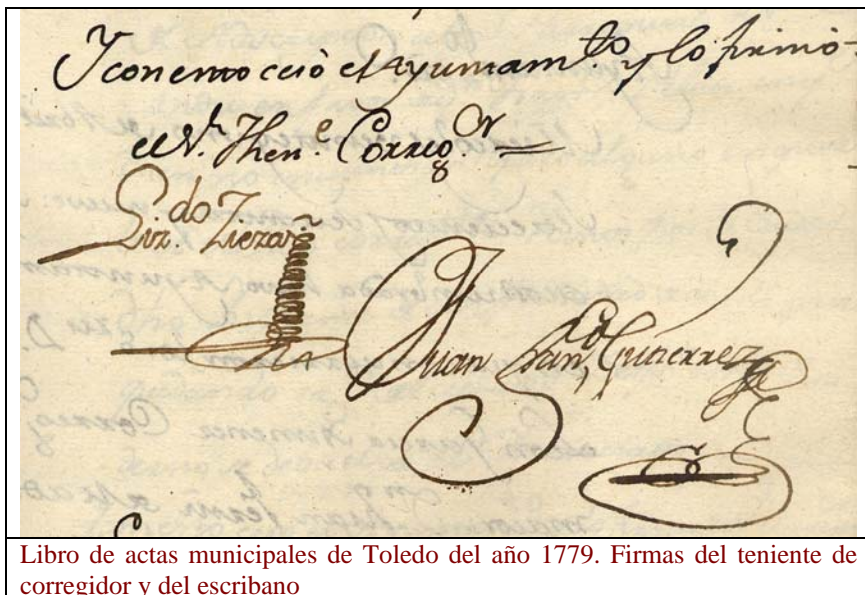 Y con esto cesó el Ayuntam.to y lo firmó
el S.r Then.e Correg.or =
Liz.do Ziezar
Juan San, Gutierrez
Libro de actas municipales de Toledo del año 1779. Firmas del teniente de
corregidor y del escribano